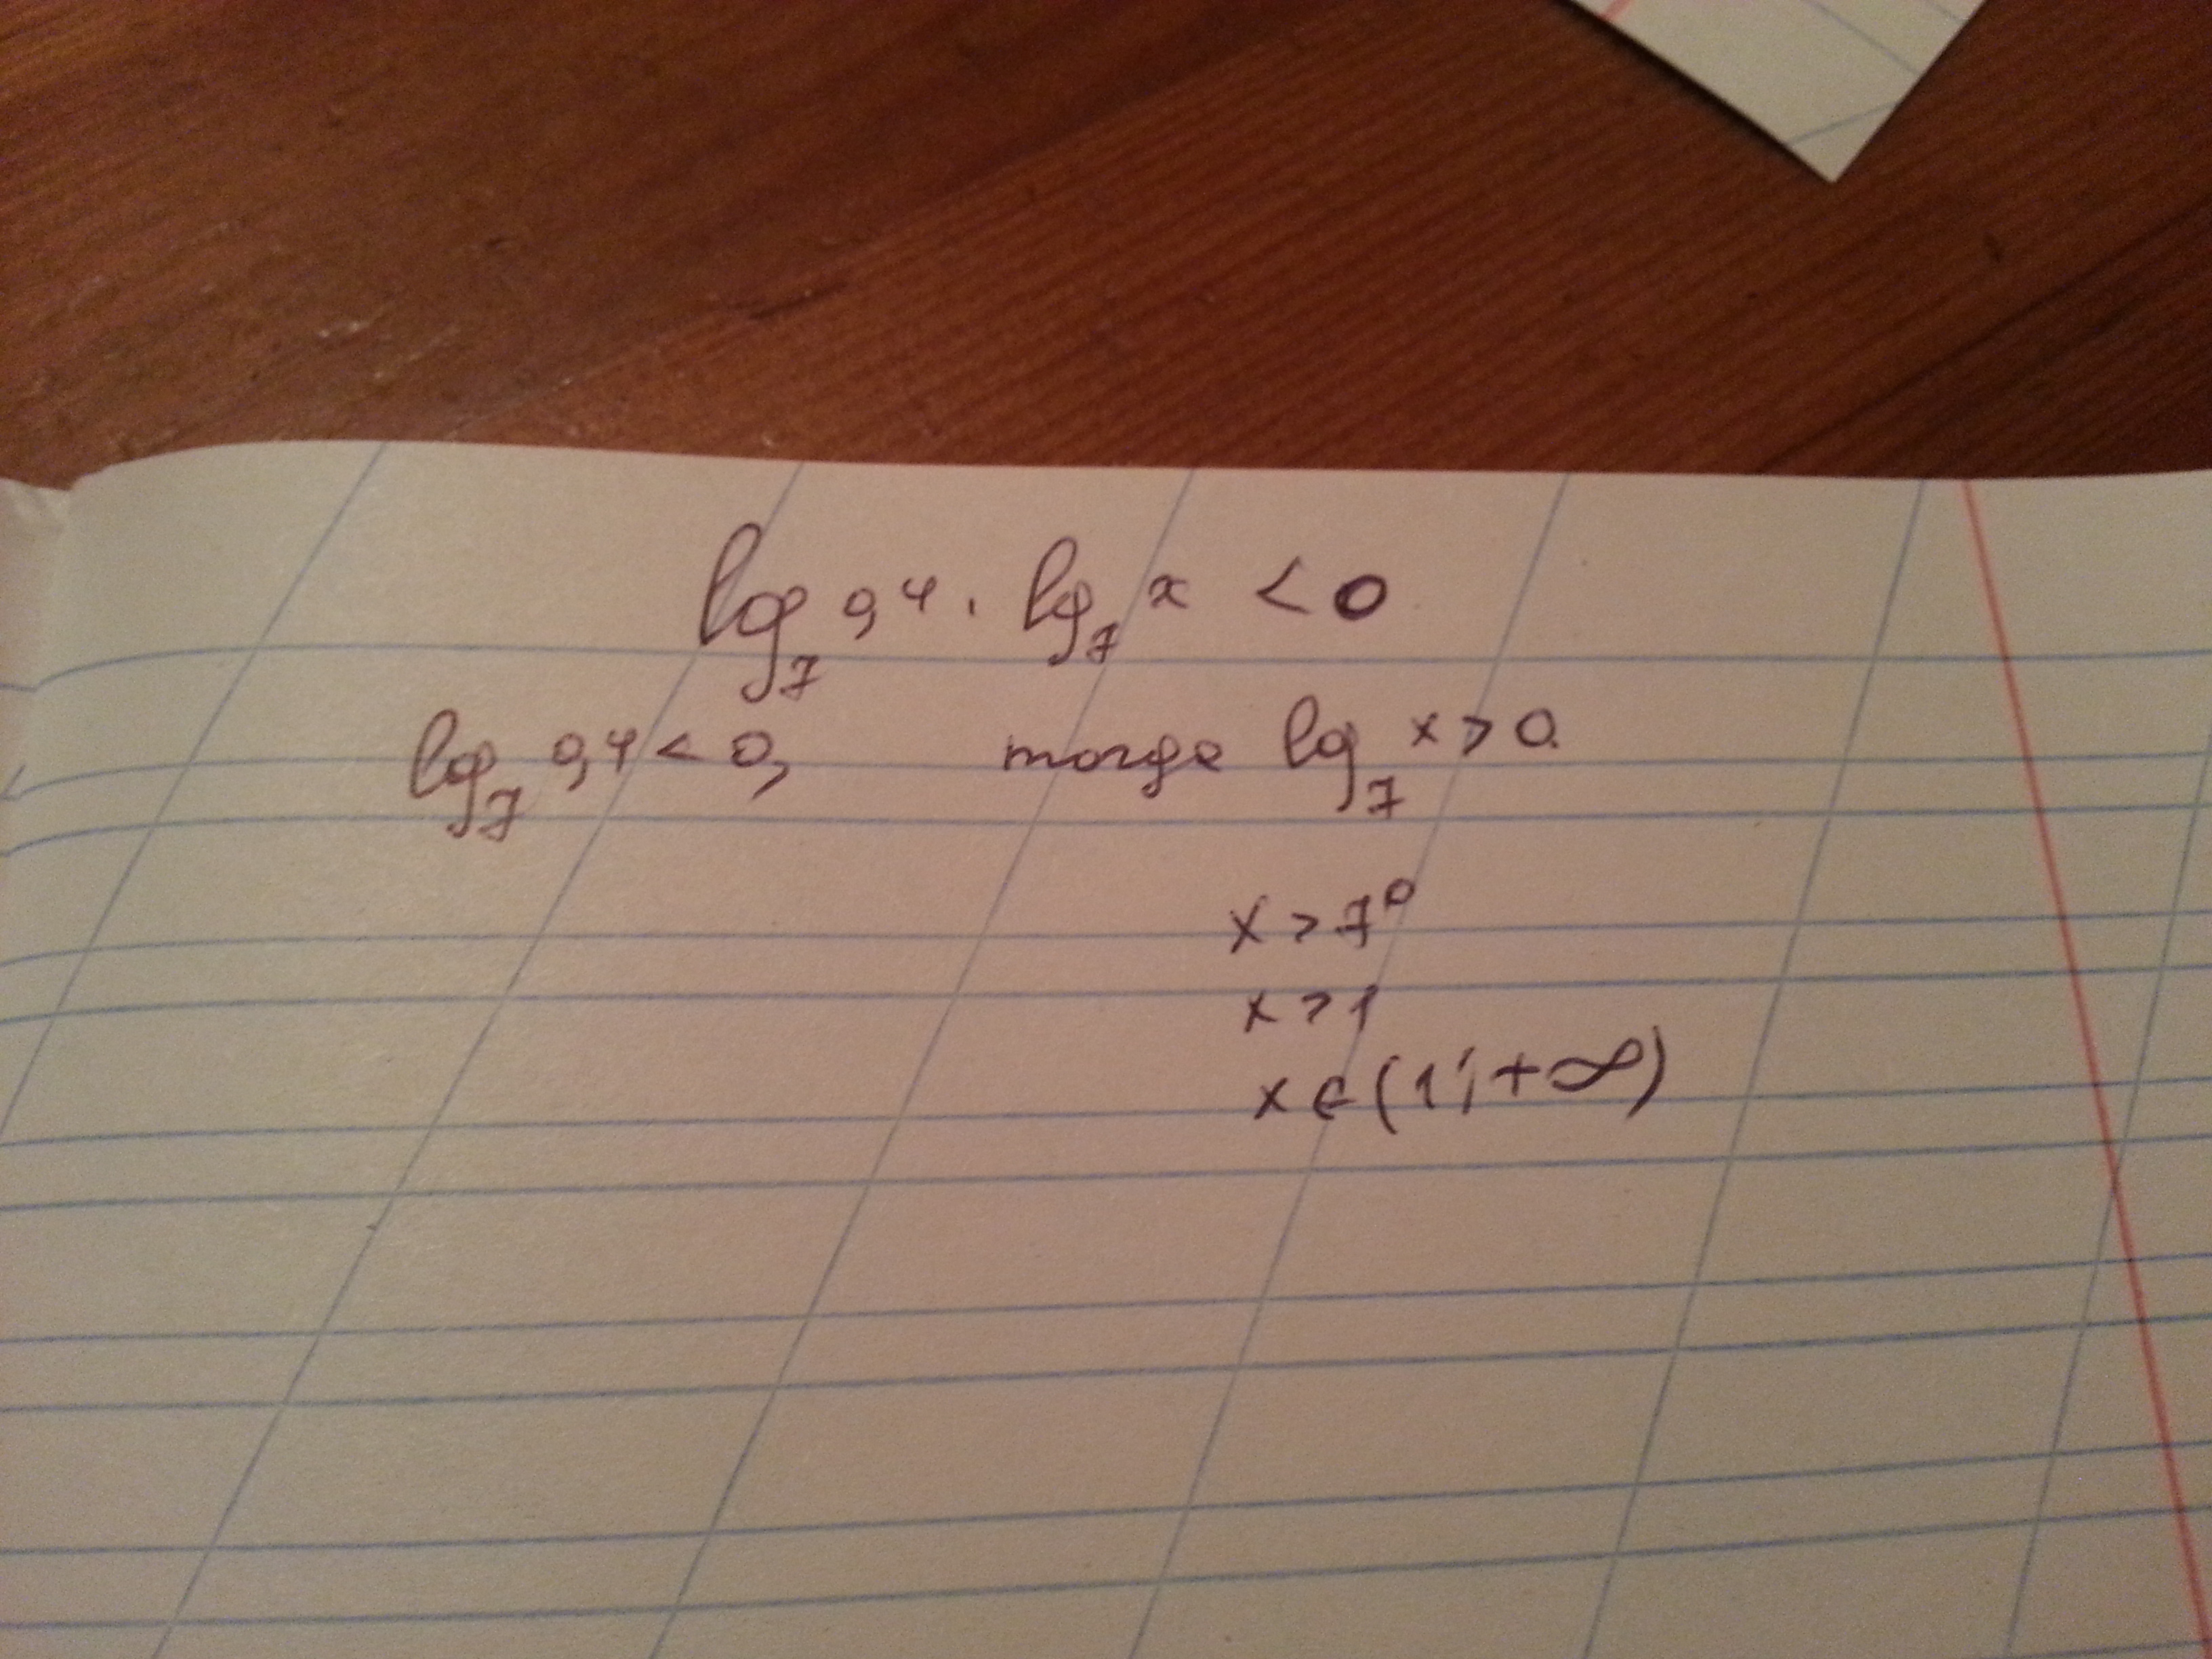 log₇ 0,4 · log₇ x < 0
log₇ 0,4 < 0, тогда log₇ x > 0
x > 7⁰
x > 1
x ∈ (1; +∞)